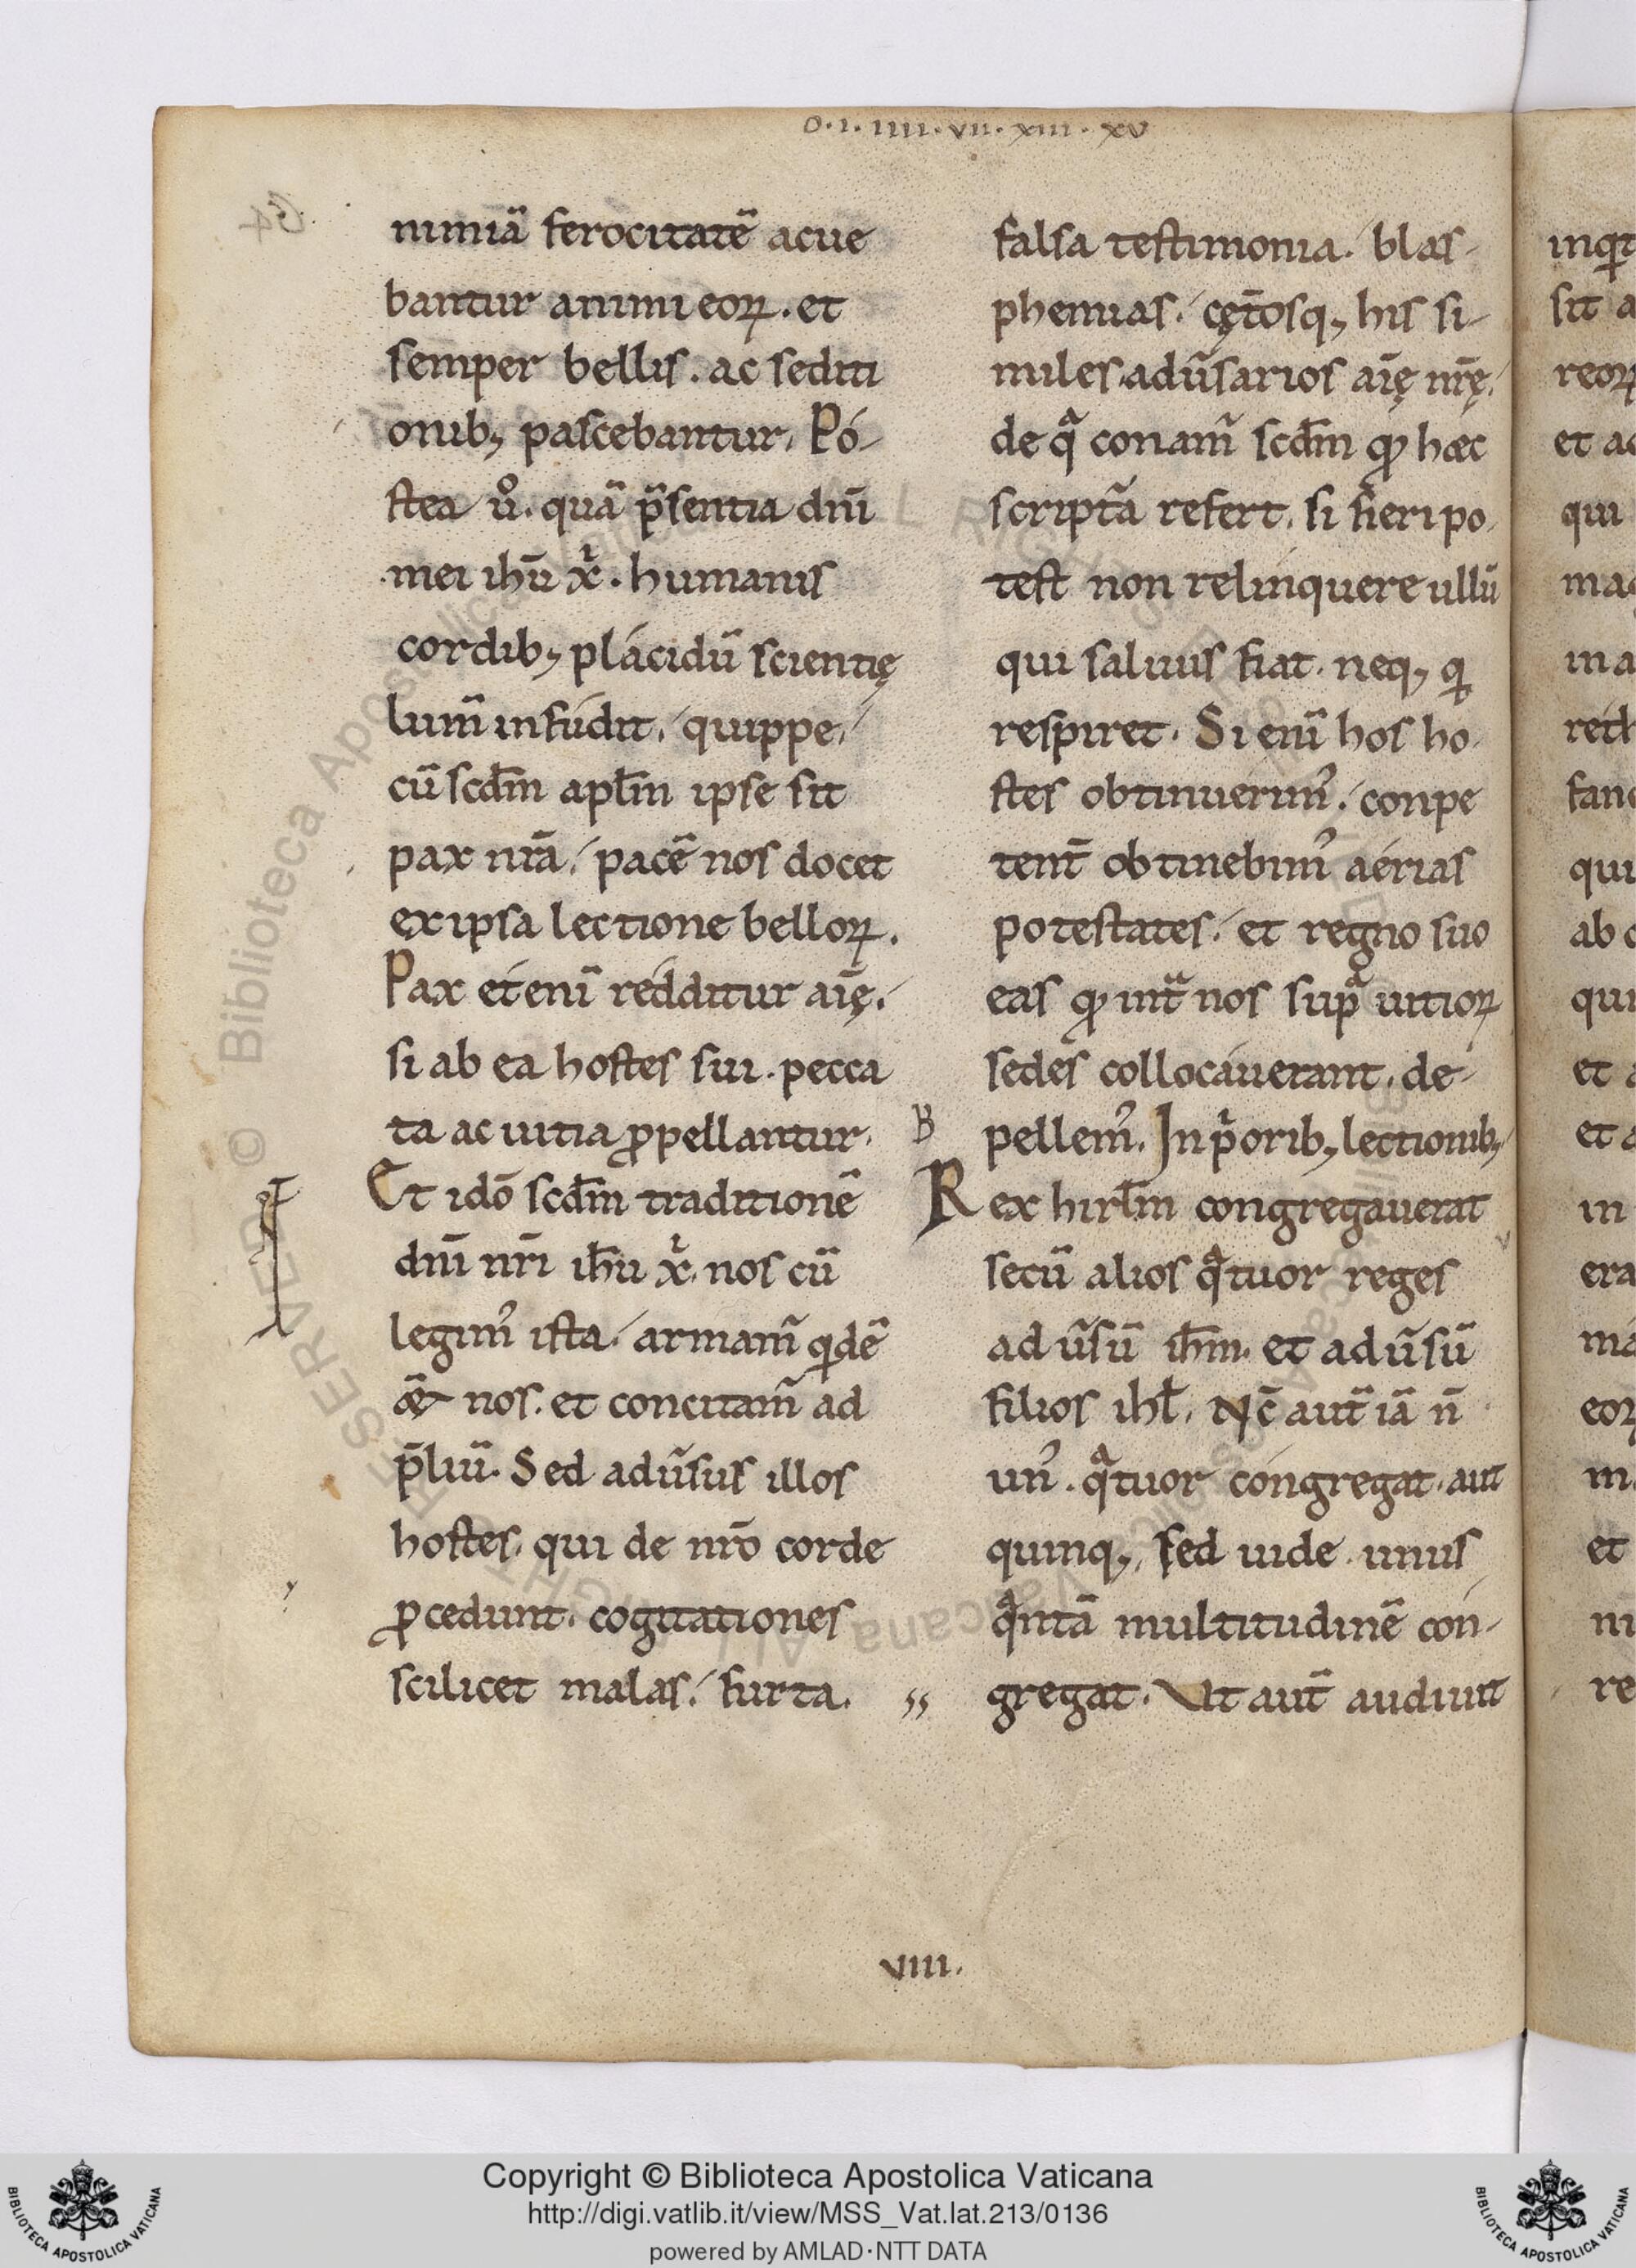 O.I.IIII.VII.XIII.XV
nimiā ferocitatē acue
bantur animi eoꝝ. et
semper bellis. ac sediti
onibꝫ pascebantur. Po-
stea ů. quā p̄sentia dn̄i
mei ihū xp̄i. humanis
cordibꝫ placidū scientię
lum̄ infudit, quippe,
cū scd̄m apl̄m ipse sit
pax nr̄a, pacē nos docet
ex ipsa lectione belloꝝ.
Pax etenī redditur aīę,
si ab ea hostes sui. pecca
ta ac uitia ꝓpellantur.
Et idō scd̄m traditionē
dn̄i nr̄i ih̄u xp̄i. nos cū
legim᾽ ista, armam̄ qͥdē
&̄ nos. et concitam̄ ad
p̄liū. Sed adūsus illos
hostes, qui de nr̄o corde
ꝓcedunt. cogitationes
scilicet malas, furta.
falsa testimonia. blas-
phemias, cęt̄osqꝫ his si-
miles adūsarios aīę nr̄ę,
de qͣ conam̄ scd̄m qͦ hæc
scriptā refert, si fieri po
test non relinquere ullū
qui saluus fiat. neqꝫ qͥ
respiret. Si enī hos ho
stes obtinuerim᾽, conpe
tent̄ obtinebim᾽ aerias
potestates, et regno suo
eas qͦ int̄ nos supͣ uitioꝝ
sedes collocauerant. de-
B
pellem᾽. In pͥoribꝫ lectionibꝫ
Rex hirl̄m congregauerat
secū alios qͣtuor reges
ad ūsū ih̄m. et ad ūsū
filios ihl̄. Nc̄ aut̄ iā n̄
un᾽. qͣtuor congregat. aut
quinqꝫ, sed uide. unus
qͣntā multitudinē con-
gregat. Vt aut̄ audiunt
VIIII.
inqͥt
sit a
reoꝝ
et ac
qui
mag
in a
reth
fanc
qui
ab o
qui
et a
et a
in
era
ma
eoꝝ
m
et
ni
re
Copyright © Biblioteca Apostolica Vaticana
http://digi.vatlib.it/view/MSS_Vat.lat.213/0136
powered by AMLAD·NTT DATA
BIBLIOTECA APOSTOLICA VATICANA
BIBLIOTECA APOSTOLICA VATICANA